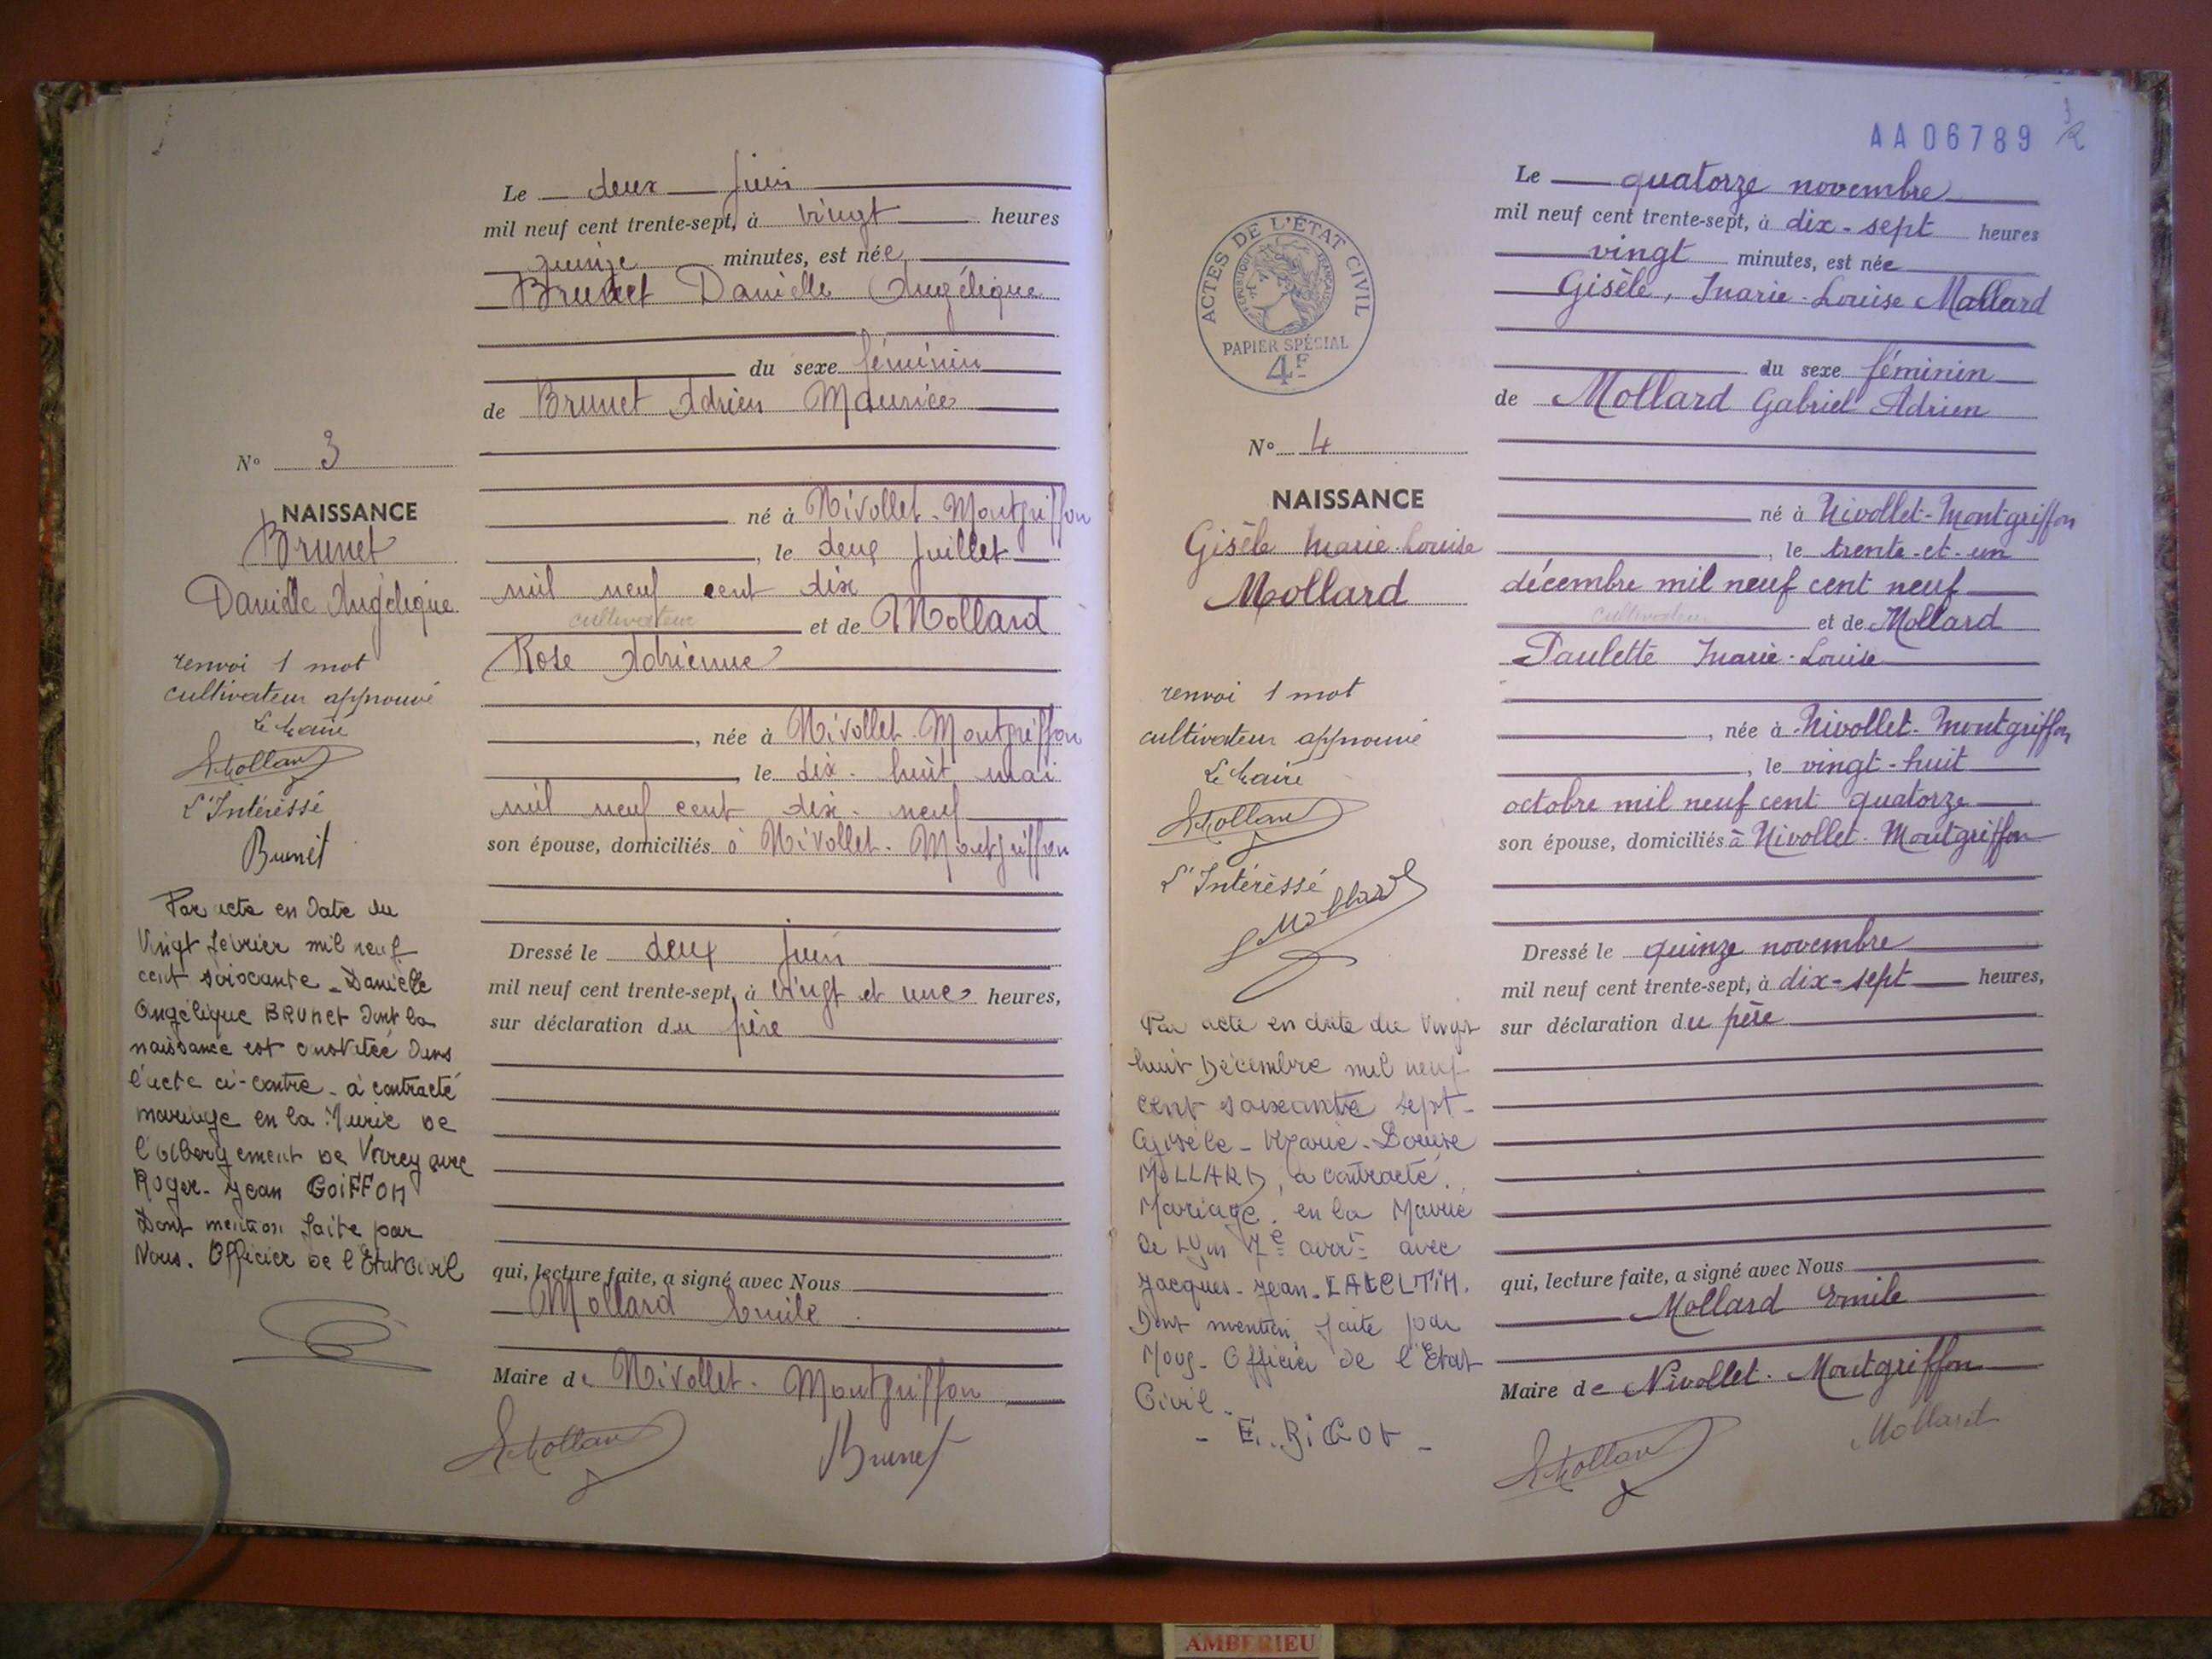 Le deux juin
mil neuf cent trente-sept, à vingt heures
quinze minutes, est née
Brunet Danielle Angélique
du sexe féminin
de Brunet Adrien Maurice
N° 3
né à Nivollet-Montgriffon
NAISSANCE
Brunet
Danielle Angélique
, le deux juillet
mil neuf cent dix
cultivateur et de Mollard
Rose Adrienne
, née à Nivollet-Montgriffon
, le dix-huit mai
mil neuf cent dix-neuf
son épouse, domiciliés à Nivollet-Montgriffon
renvoi 1 mot
cultivateur approuvé
Le Maire
EMollard
L'Intéréssé
Brunet
Par acte en date du
Vingt février mil neuf
cent soixante - Danielle
Angélique BRUNET dont la
naissance est constatée dans
l'acte ci-contre - a contracté
mariage en la Mairie de
l'Abergement de Varey avec
Roger - Jean GOIFFON
Dont mention faite par
Nous. Officier de l'Etat Civil
Dressé le deux juin
mil neuf cent trente-sept, à vingt et une heures,
sur déclaration du père
qui, lecture faite, a signé avec Nous
Mollard Emile
Maire de Nivollet-Montgriffon
EMollard
Brunet
AA06789
ACTES DE L'ÉTAT CIVIL
RÉPUBLIQUE FRANÇAISE
PAPIER SPÉCIAL
4F
Le quatorze novembre
mil neuf cent trente-sept, à dix-sept heures
vingt minutes, est née
Gisèle, Marie-Louise Mollard
du sexe féminin
de Mollard Gabriel Adrien
N° 4
NAISSANCE
Gisèle Marie-Louise
Mollard
né à Nivollet-Montgriffon
, le trente-et-un
décembre mil neuf cent neuf
cultivateur et de Mollard
Paulette Marie-Louise
, née à Nivollet-Montgriffon
, le vingt-huit
octobre mil neuf cent quatorze
son épouse, domiciliés à Nivollet-Montgriffon
renvoi 1 mot
cultivateur approuvé
Le Maire
EMollard
L'Intéréssé
GMollard
Par acte en date du Vingt
huit Décembre mil neuf
cent soixante sept -
Gisèle - Marie-Louise
MOLLARD, a contracté
Mariage, en la Mairie
de Lyon 7e arrt avec
Jacques - Jean -
Dont mention faite par
Nous - Officier de l'Etat
Civil -
- E. RIGOT -
Dressé le quinze novembre
mil neuf cent trente-sept, à dix-sept heures,
sur déclaration du père
qui, lecture faite, a signé avec Nous
Mollard Emile
Maire de Nivollet-Montgriffon
EMollard
Mollard
AMBERIEU